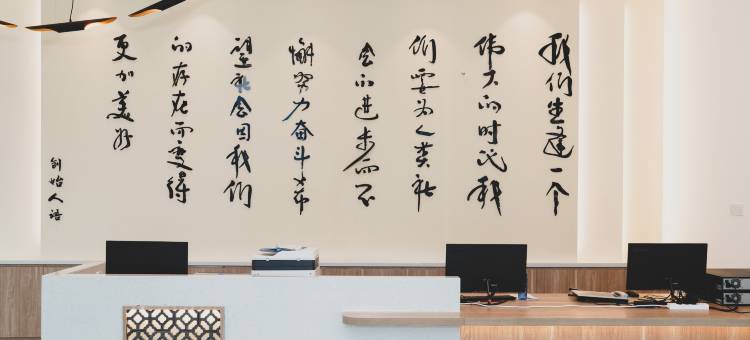 我们生逢一个
伟大的时代我
们要为人类社
会的进步而不
懈努力奋斗希
望社会因我们
的存在而变得
更加美好
创始人语